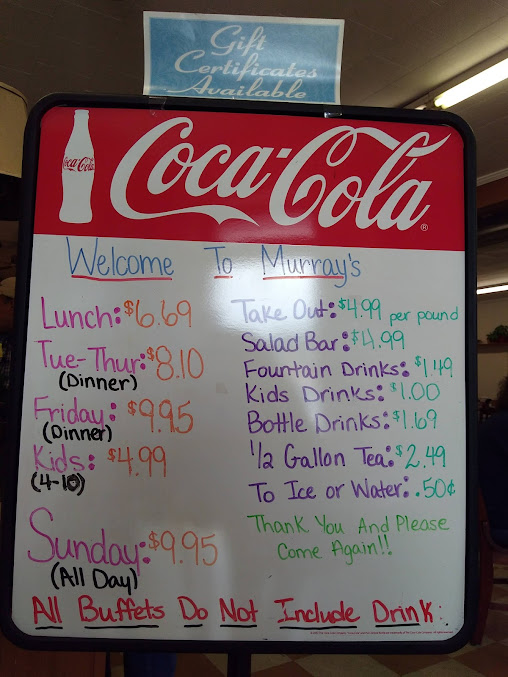 Gift
Certificates
Available
Coca-Cola
Coca-Cola ®
Welcome To Murray's
Lunch: $6.69
Tue-Thur: $8.10
(Dinner)
Friday: $9.95
(Dinner)
Kids: $4.99
(4-10)
Sunday: $9.95
(All Day)
Take Out: $4.99 per pound
Salad Bar: $4.99
Fountain Drinks: $1.49
Kids Drinks: $1.00
Bottle Drinks: $1.69
1/2 Gallon Tea: $2.49
To Ice or Water: .50¢
Thank You And Please
Come Again!!
All Buffets Do Not Include Drink: